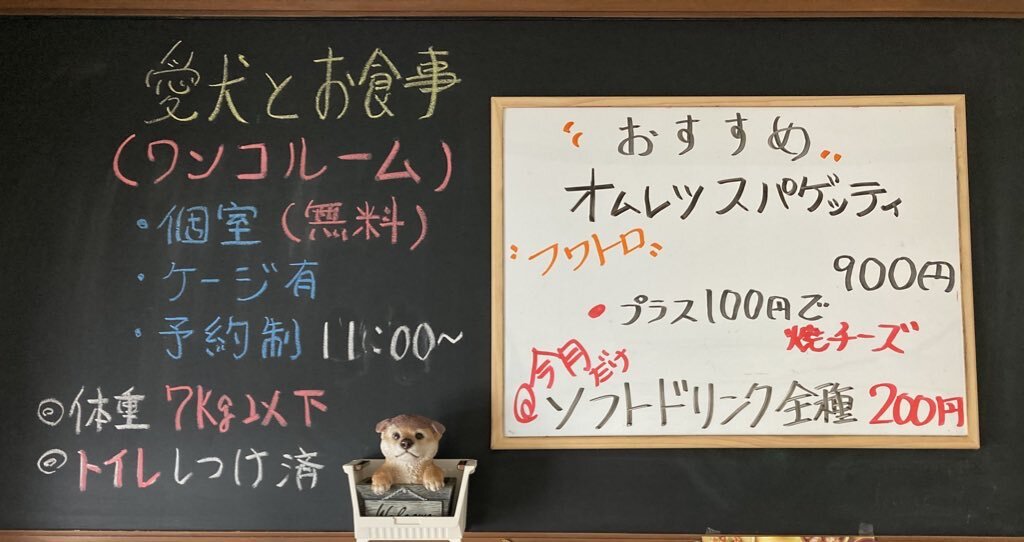 愛犬とお食事
(ワンコルーム)
・個室(無料)
・ケージ有
・予約制 11:00~
◎体重 7Kg以下
◎トイレしつけ済
Welcome
おすすめ
オムレツスパゲッティ
フワトロ
900円
• プラス100円で
焼チーズ
◎今月だけ
ソフトドリンク全種 200円